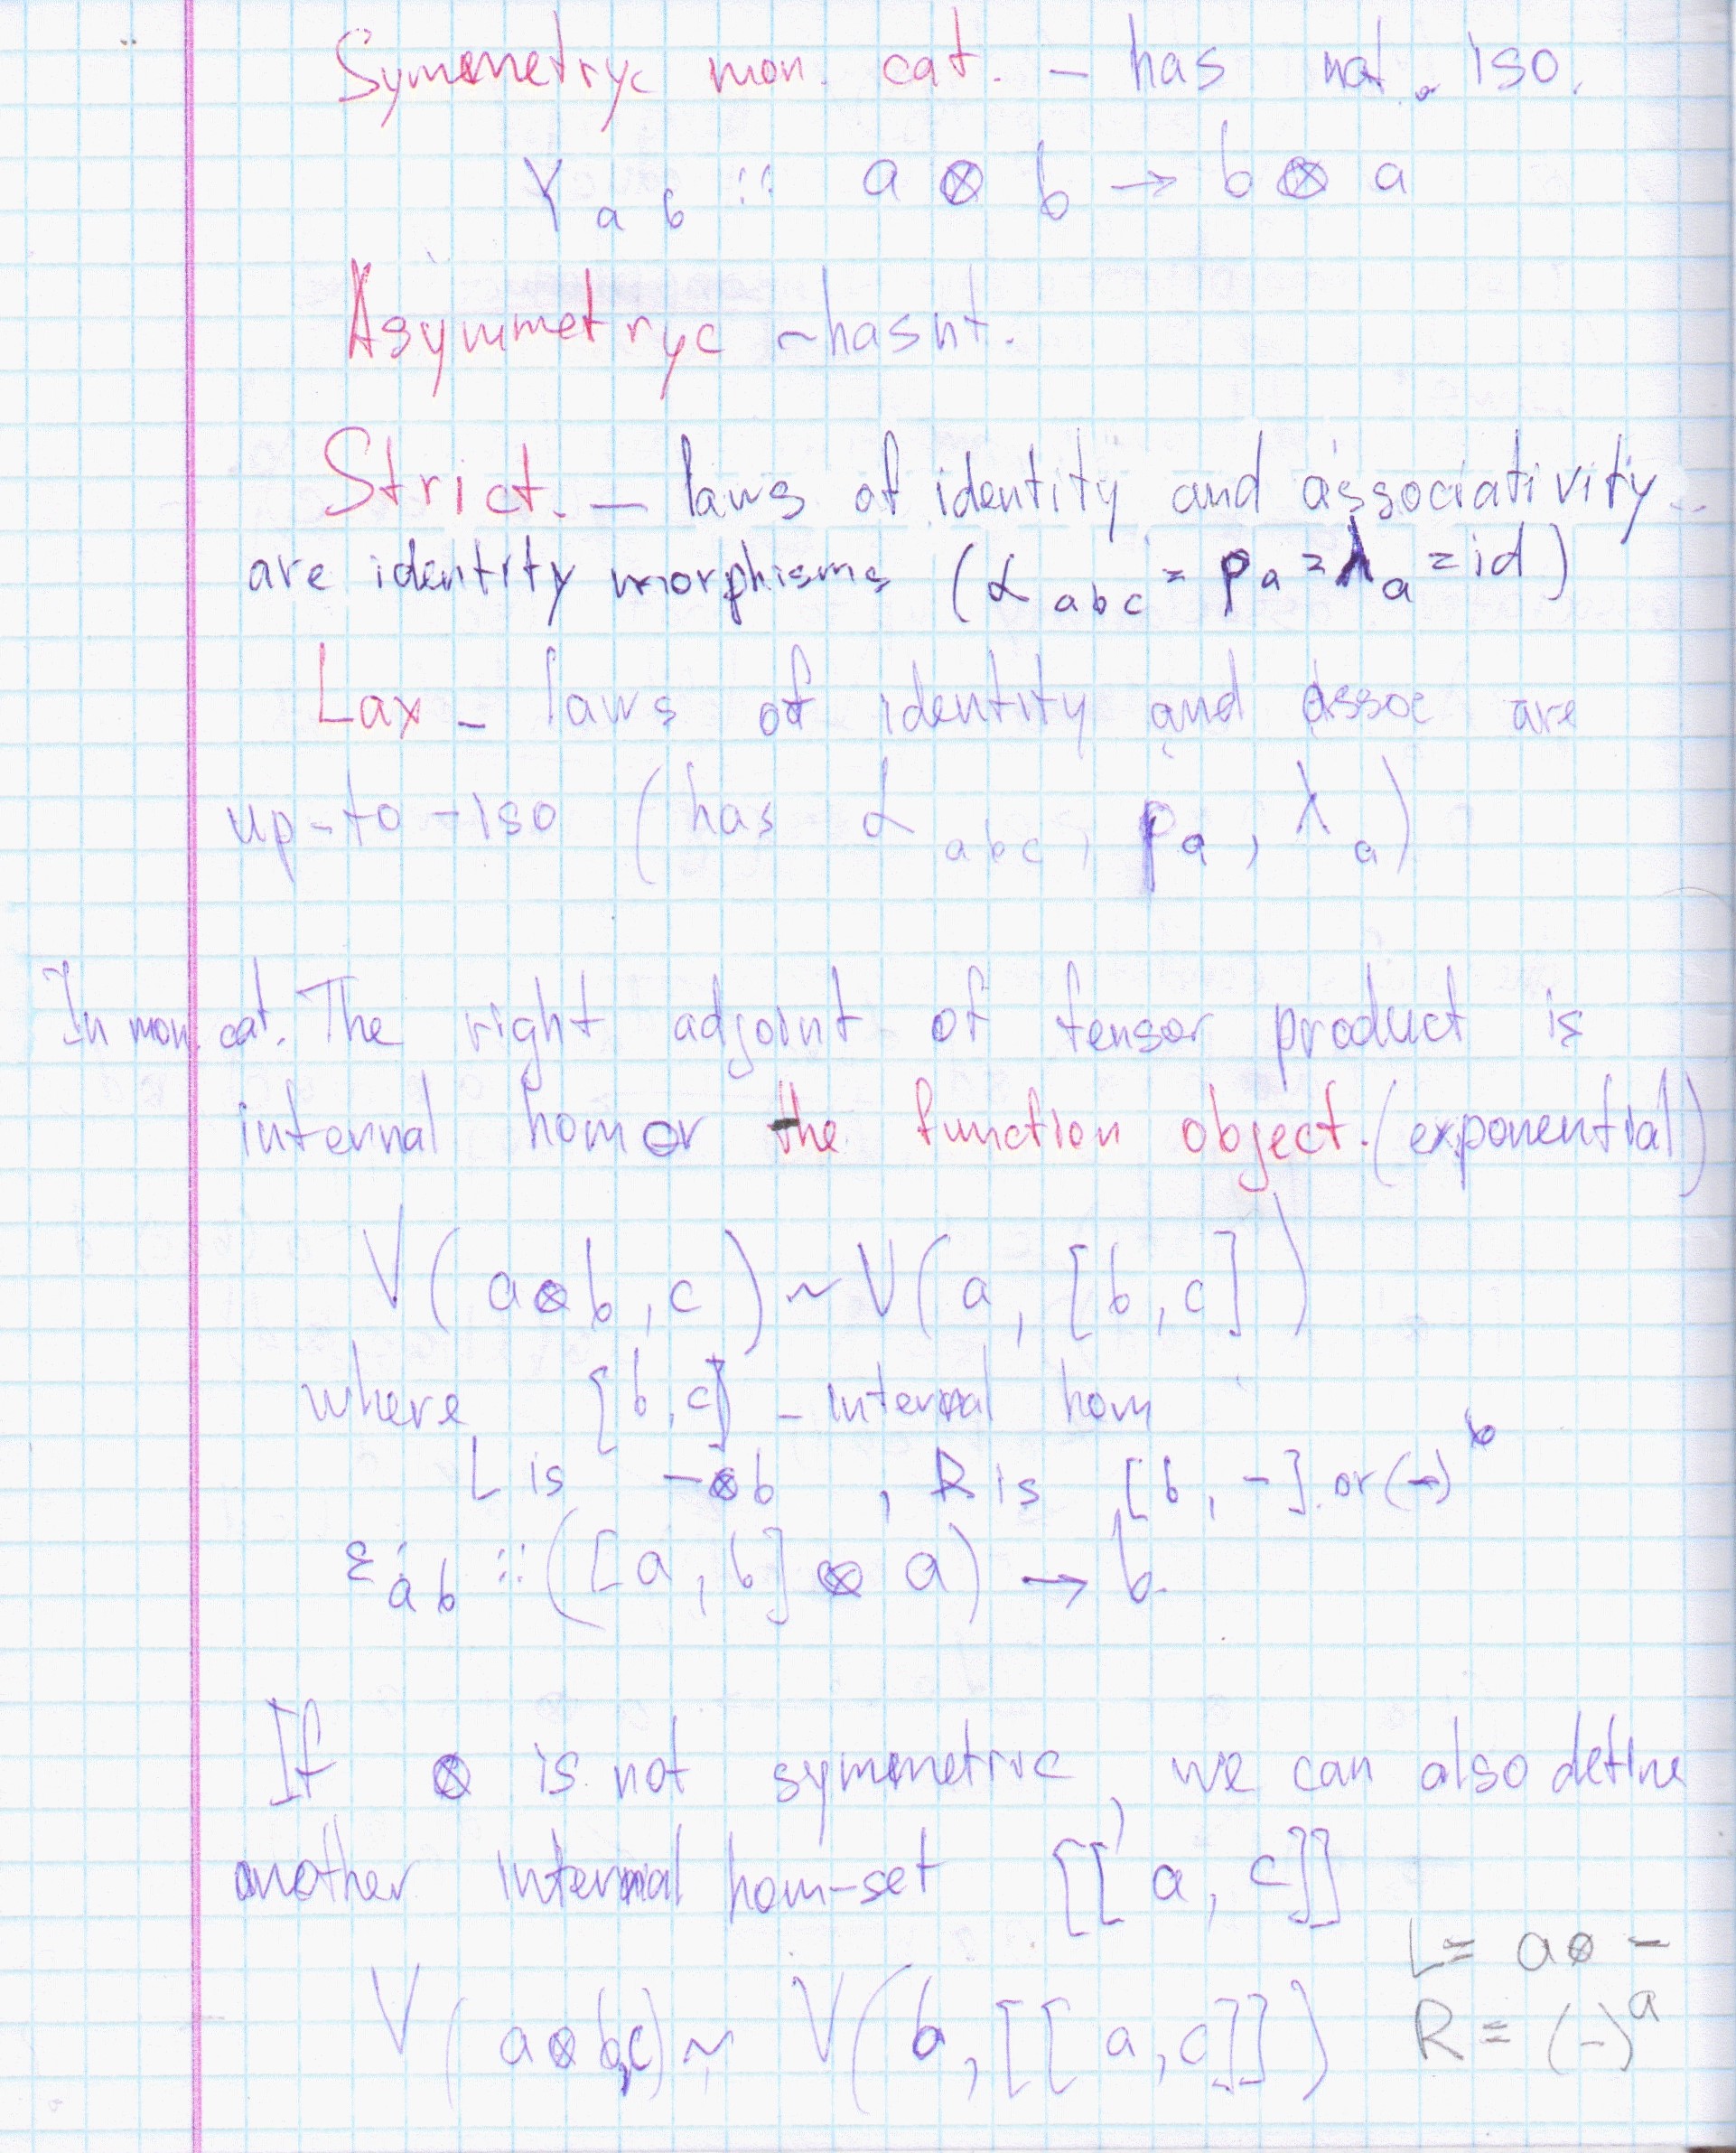 Symmetryc mon. cat. – has nat. iso.
γ a b :: a ⊗ b → b ⊗ a
Asymmetryc – hasnt.
Strict. – laws of identity and associativity
are identity morphisms (α abc = ρ a = λ a = id)
Lax – laws of identity and assoc are
up-to-iso (has α abc, ρ a, λ a)
In mon. cat. The right adjoint of tensor product is
internal hom or the function object. (exponential)
V(a⊗b, c) ~ V(a, [b, c])
where [b, c] – internal hom
L is -⊗b , R is [b, -] or (-)^b
ε a b :: ([a, b] ⊗ a) → b
If ⊗ is not symmetric, we can also define
another internal hom-set [[a, c]]
L = a⊗ –
V(a⊗b,c) ~ V(b, [[a, c]])
R = (-)^a